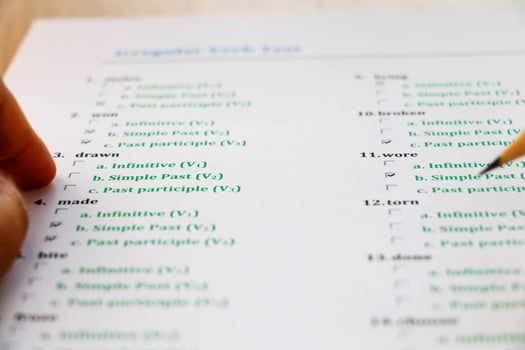 Irregular Verb Test
1. stolen
a. Infinitive (V1)
b. Simple Past (V2)
c. Past participle (V3)
2. won
a. Infinitive (V1)
b. Simple Past (V2)
c. Past participle (V3)
3. drawn
a. Infinitive (V1)
b. Simple Past (V2)
c. Past participle (V3)
4. made
a. Infinitive (V1)
b. Simple Past (V2)
c. Past participle (V3)
5. bite
a. Infinitive (V1)
b. Simple Past (V2)
c. Past participle (V3)
a. Infinitive (V1)
9. bring
a. Infinitive (V1)
b. Simple Past (V2)
c. Past participle
10. broken
a. Infinitive (V1)
b. Simple Past (V2)
c. Past participle (V
11. wore
a. Infinitive (V1)
b. Simple Past (V2)
c. Past participle (V3
12. torn
a. Infinitive (V1)
b. Simple Past (V2
c. Past participle
13. done
a. Infinitive (V1)
b. Simple Past
c. Past participle
14. choose
a. Infinitive